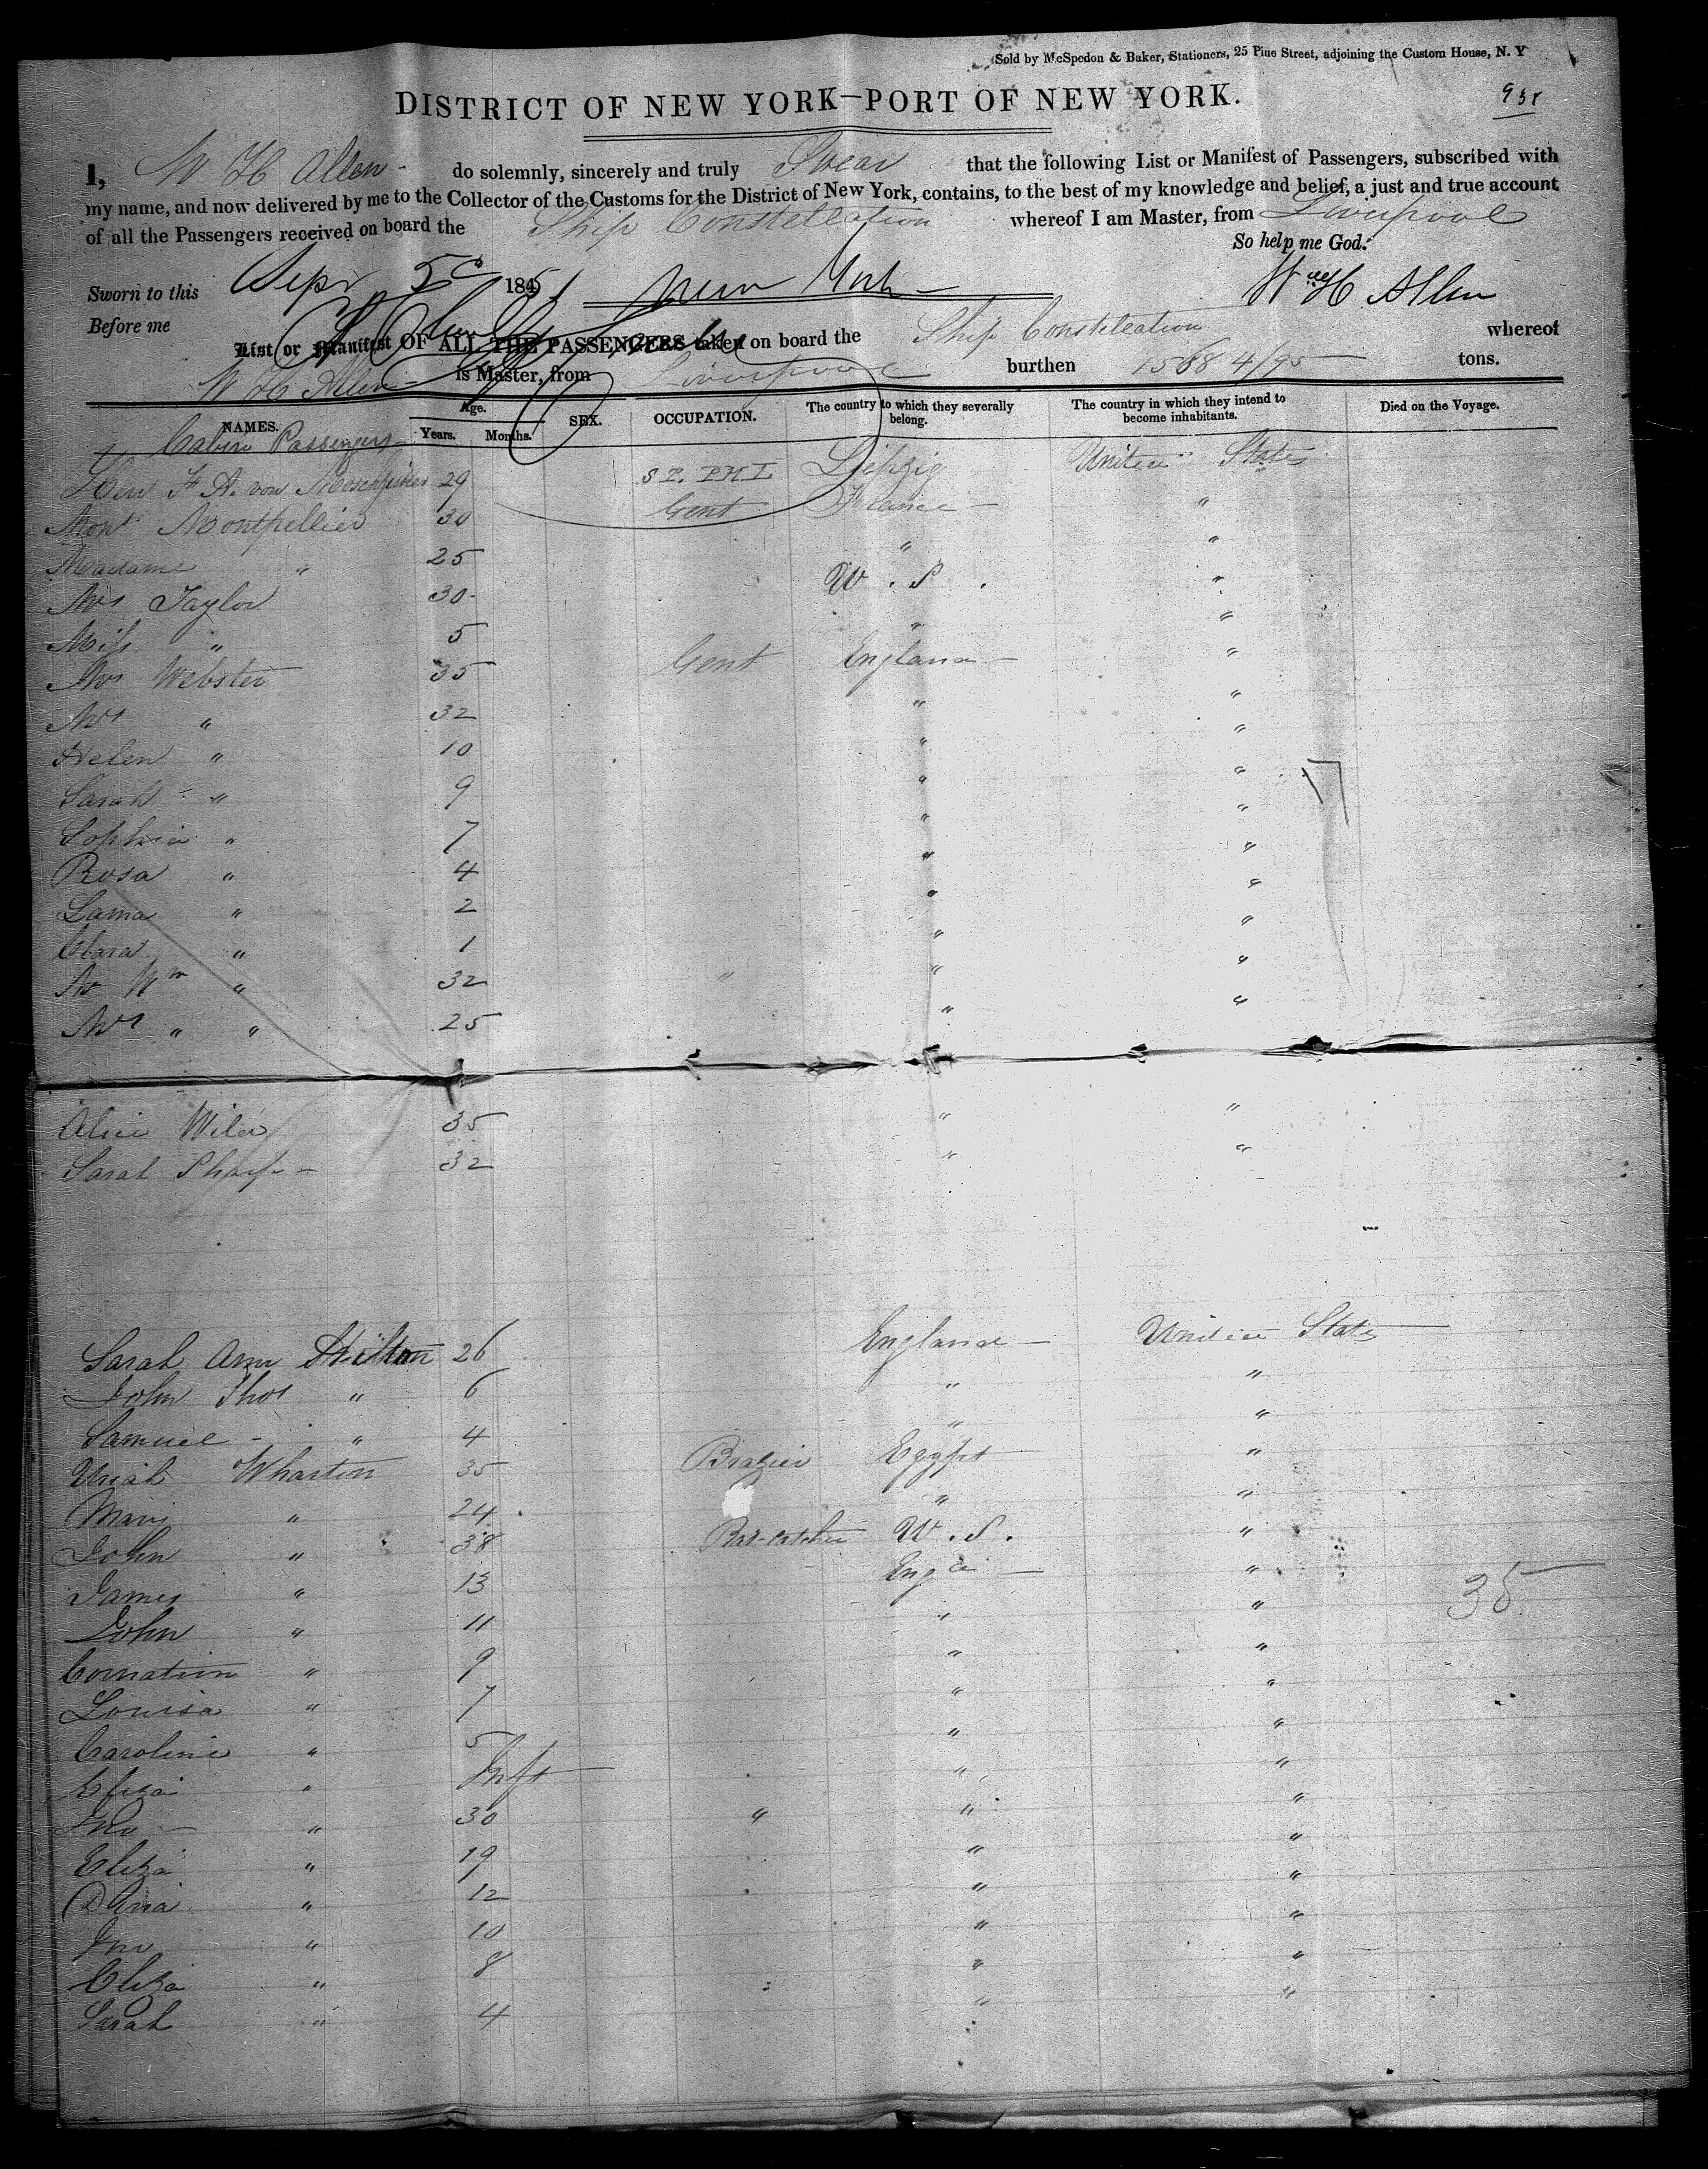 Sold by McSpedon & Baker, Stationers, 25 Pine Street, adjoining the Custom House, N. Y
DISTRICT OF NEW YORK—PORT OF NEW YORK.
I, W H Allen do solemnly, sincerely and truly Swear that the following List or Manifest of Passengers, subscribed with
my name, and now delivered by me to the Collector of the Customs for the District of New York, contains, to the best of my knowledge and belief, a just and true account
of all the Passengers received on board the Ship Constellation whereof I am Master, from Liverpool
So help me God.
Sworn to this Sepr 5 1851 New York Wm H Allen
Before me
List or Manifest OF ALL THE PASSENGERS taken on board the Ship Constellation whereof
W H Allen is Master, from Liverpool burthen 1568 4/95 tons.
NAMES. Age. Years. Months. SEX. OCCUPATION. The country to which they severally belong. The country in which they intend to become inhabitants. Died on the Voyage.
Cabin Passengers
Herr F A. von 29 Leipzig United States
Monr Montpellier 30 Gent France "
Madame " 25 " "
Mrs Taylor 30 U.S. "
Miss " 5 " "
Mr Webster 35 Gent England "
Mrs " 32 " "
Helen " 10 " "
Sarah " 9 " "
Sophia " 7 " "
Rosa " 4 " "
" 2 " "
Clara " 1 " "
Mr Wm " 32 " " "
Mrs " " 25 " "
Alice 35 " "
Sarah Sharp 32 " "
Sarah Ann 26 England United States
John Thos " 6 " "
Samuel " 4 " "
Uriah Wharton 35 Brazier Egypt "
" 24 " "
John " 38 U.S. "
James " 13 Engd "
John " 11 " "
" 9 " "
Louisa " 7 " "
Caroline " 5 " "
Eliza " Inft " "
Jno " 30 " " "
Eliza " 19 " "
" 12 " "
Jno " 10 " "
Eliza " 8 " "
Sarah " 4 " "